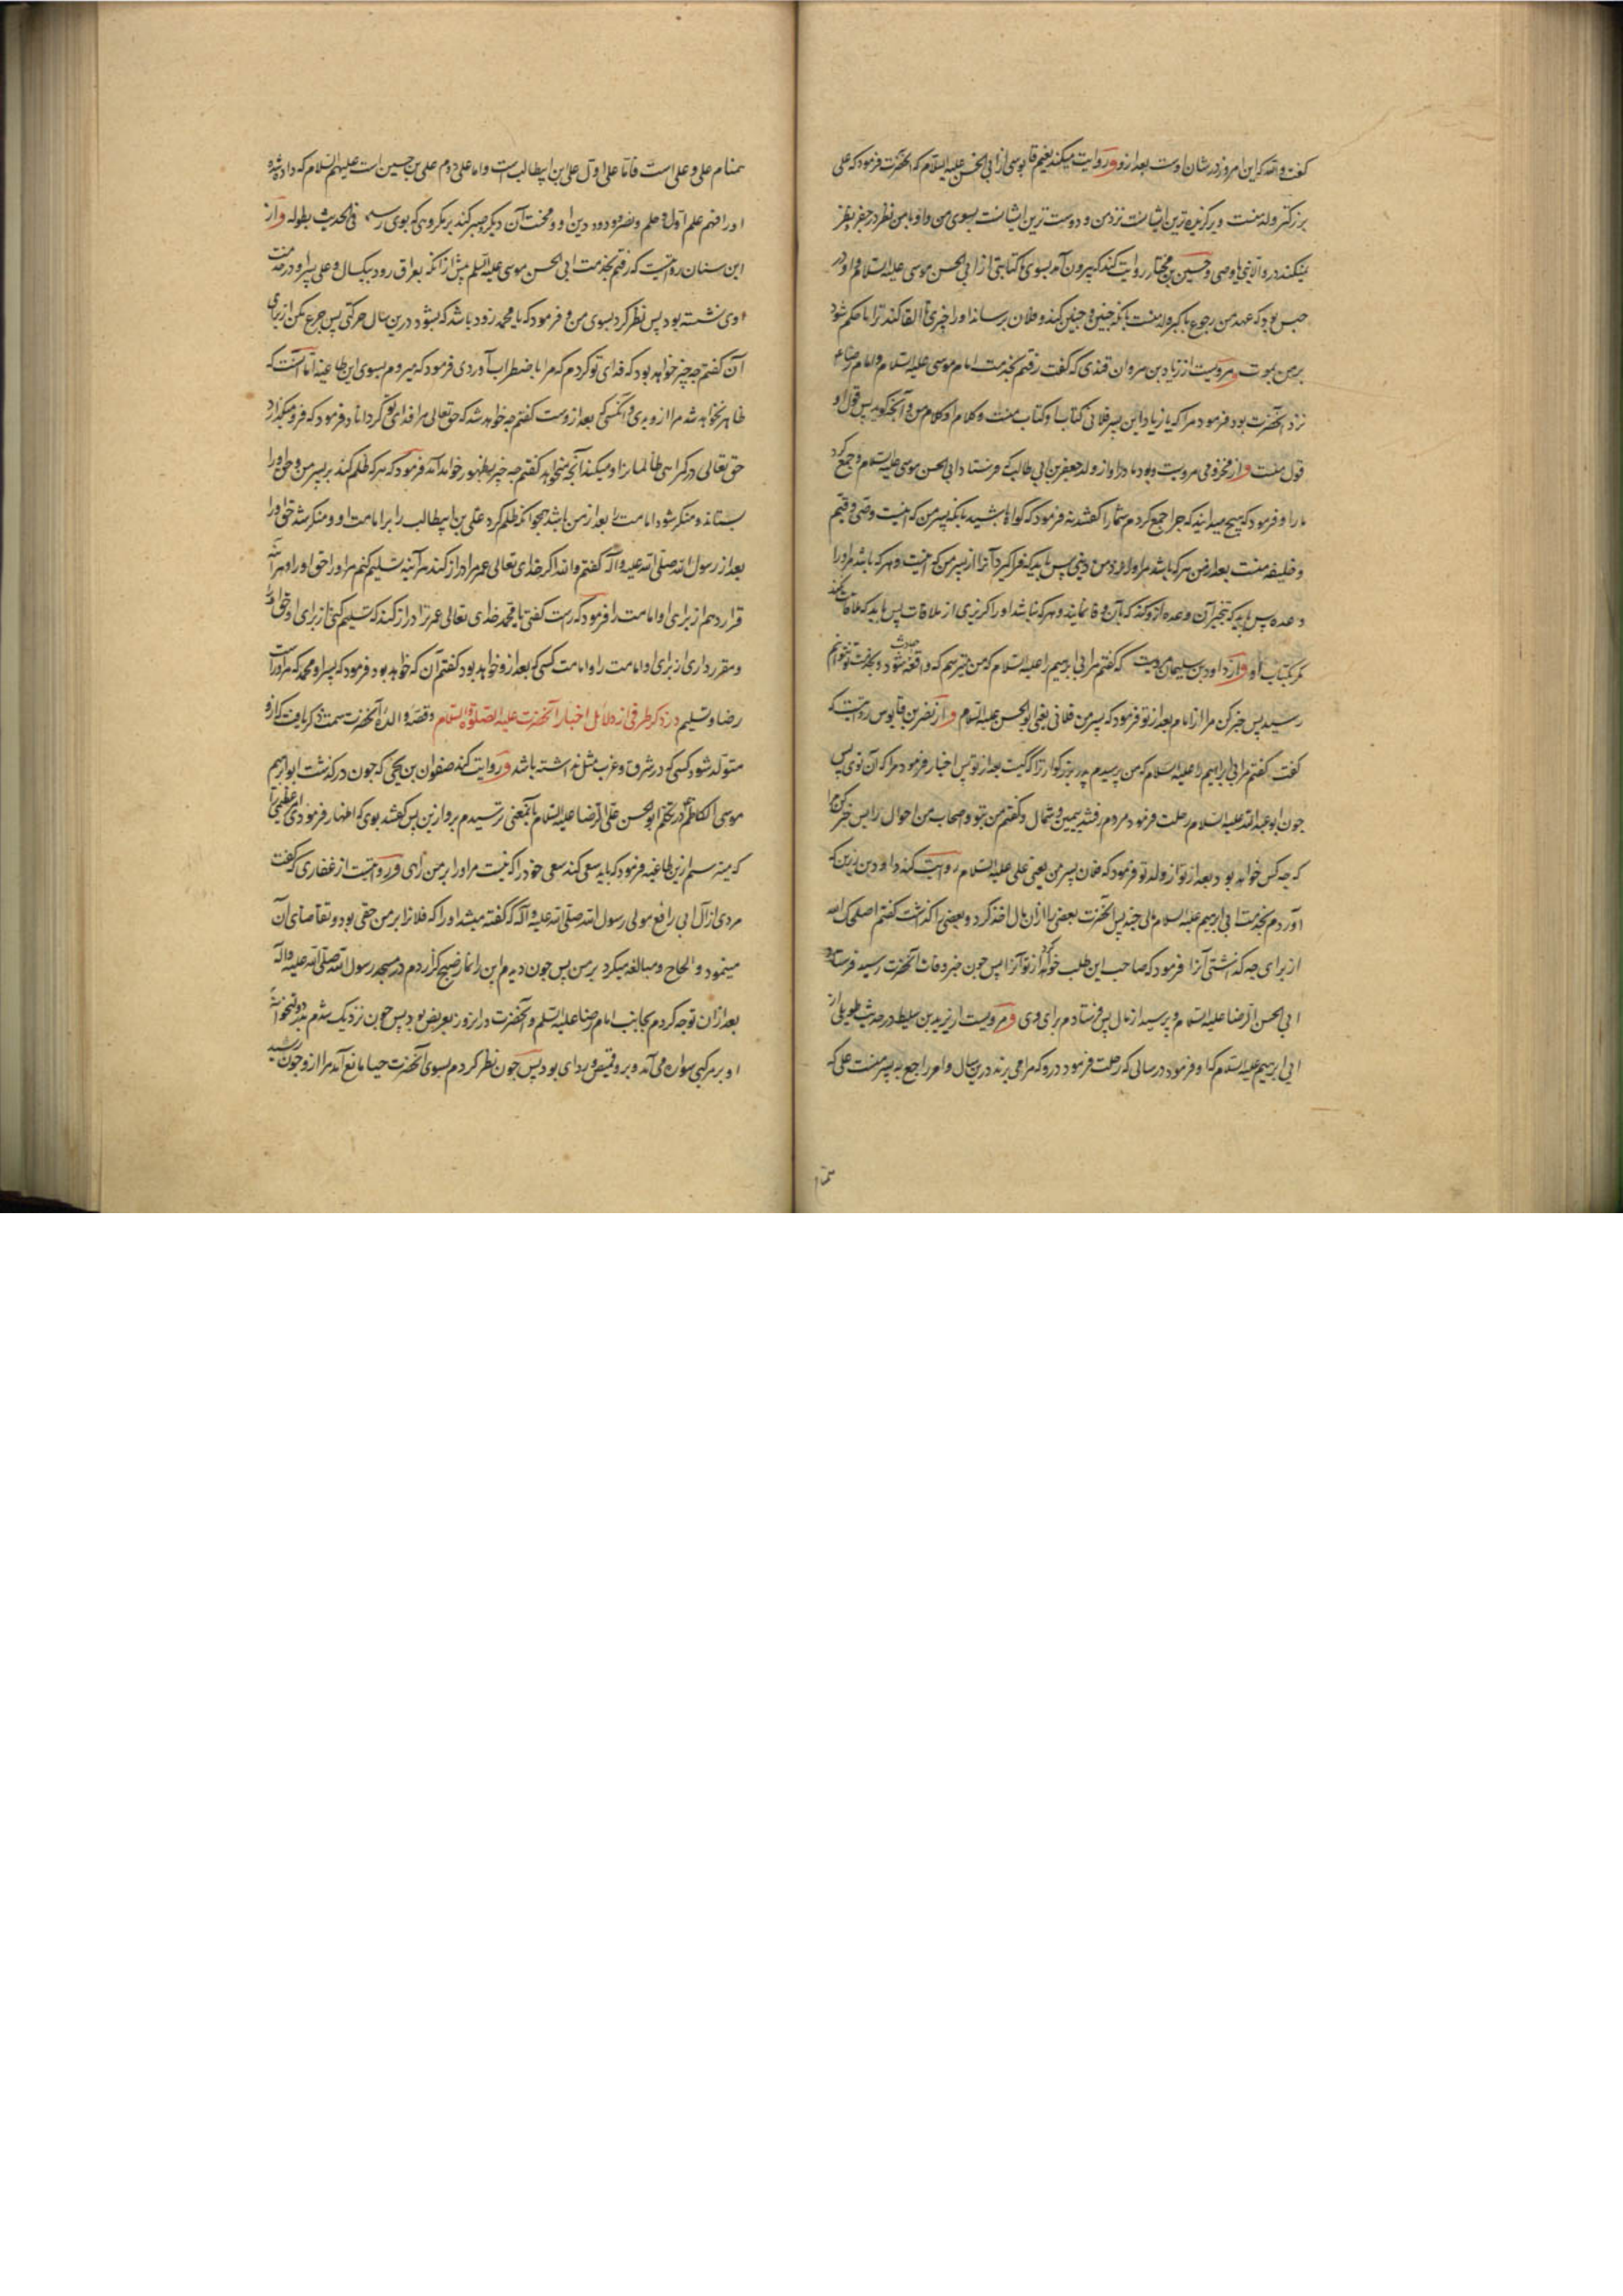 گفت والله که این امروز در شان اوست بعد ازو و روایت میکند نعیم قابوسی از ابی الحسن علیه السلام که آنحضرت فرمود که علی
بزرگتر ولد منست و برگزیده‌ترین ایشانست نزد من و دوست‌ترین ایشانست بسوی من و او با من نظر در جفر و نظر
نمیکند در و الا نبی یا وصی و حسین بن مختار روایت کند که بیرون آمد بسوی ما کتابتی از ابی الحسن موسی علیه السلام و او در
حبس بود که عهد من رجوع باکبر ولد منست بانکه چنین و چنین کند و فلان برساند او را چیزی تا القا کند ترا یا حکم شود
بر من بموت و مرویست از زیاد بن مروان قندی که گفت رفتم بخدمت امام موسی علیه السلام و امام رضا
نزد آنحضرت بود فرمود مرا که یا زیاد این پسر فلانی کتاب او کتاب منست و کلام او کلام من و آنچه گوید پس قول او
قول منست و از مخزومی مرویست و بود مادر او از ولد جعفر بن ابی طالب که فرستاد ابی الحسن موسی علیه السلام و جمع کرد
ما را و فرمود که هیچ میدانید که چرا جمع کردم شما را گفتند نه فرمود که گواه باشید بانکه پسر من که اینست وصی و قیم
و خلیفه منست بعد از من هر که باشد مر او را نزد من دینی پس باید که فرا گیرد آنرا از پسر من که اینست و هر که باشد مر او را
وعده پس باید که تنجیز آن وعده ازو کند که بآن وفا نمایند و هر که نباشد او را گزیری از ملاقات پس باید که ملاقات نکند
مگر بکتاب او و از داود بن سلیمان مرویست که گفتم مر ابی ابرهیم را علیه السلام که من میترسم که واقعه حادث شود و بخدمت تو نتوانم
رسید پس خبر کن مرا از امام بعد از تو فرمود که پسر من فلانی یعنی ابو الحسن علیه السلام و از نصر بن قابوس روایتست که
گفت گفتم مر ابی ابرهیم را علیه السلام که من پرسیدم پدر بزرگوار ترا که کیست بعد از تو پس اخبار فرمود مرا که آن توی پس
چون ابو عبدالله علیه السلام رحلت فرمود مردم رفتند بیمین و شمال و گفتم من بتو و اصحاب من احوال را پس خبر کن مرا
که چه کس خواهد بود بعد از تو از ولد تو فرمود که فلان پسر من یعنی علی علیه السلام روایت کند داود بن زربی که
آوردم بخدمت ابی ابرهیم علیه السلام مالی چند پس آنحضرت بعضی را از آن مال اخذ کرد و بعضی را گذاشت گفتم اصلحک الله
از برای چه گذاشتی آنرا فرمود که صاحب این طلب خواهد کرد از تو آنرا پس چون خبر وفات آنحضرت رسید فرستاد
ابی الحسن الرضا علیه السلام و پرسید از مال پس فرستادم برای وی و مرویست از یزید بن سلیط در حدیث طویلی از
ابی ابرهیم علیه السلام که او فرمود در سالی که رحلت فرمود درو که مرا می برند درین سال و امر راجع به پسر منست علی که
همنام
همنام علی و علی است فاما علی اول علی بن ابیطالب است و اما علی دوم علی بن حسین است علیهم السلام که داده شده
او را فهم علم اول و علم و نصر و ود و دین او و محنت آن دیگر و صبر کند بر مکروهی که بوی رسد فی الحدیث بطوله و از
ابن سنان روایتست که رفتم بخدمت ابی الحسن موسی علیه السلم پیش از آنکه بعراق رود بیکسال و علی پسر او در خدمت
وی نشسته بود پس نظر کرد بسوی من و فرمود که یا محمد زود باشد که بشود درین سال حرکتی پس جزع مکن از برای
آن گفتم چه چیز خواهد بود که فدای تو گردم که مرا باضطراب آوردی فرمود که میروم بسوی این طاغیه اما آنست که
ظاهر نخواهد شد مرا ازو بدی و آنکسی که بعد ازوست گفتم چه خواهد شد که حق تعالی مرا فدای تو گرداناد فرمود که فرو میگذارد
حق تعالی در گمراهی ظالمان را و میکند آنچه میخواهد گفتم چه چیز بظهور خواهد آمد فرمود که هر که ظلم کند بر پسر من و حق او را
بستاند و منکر شود امامت را بعد از من باشد همچو آنکه ظلم کرد علی بن ابیطالب را بر امامت او و منکر شد حق او را
بعد از رسول الله صلی الله علیه و آله گفتم والله اگر خدای تعالی عمر مرا دراز کند هر آینه تسلیم کنم مر او را حق او را و هر آینه
قرار دهم از برای او امامت را فرمود که راست گفتی یا محمد خدای تعالی عمر ترا دراز کند که تسلیم کنی از برای او حق او را
و مقرر داری از برای او امامت را و امامت کسی که بعد ازو خواهد بود گفتم آن که خواهد بود فرمود که پسر او محمد که مر او راست
رضا و تسلیم در ذکر طرفی از دلائل اخبار آنحضرت علیه الصلوة و السلام و قصه والده آنحضرت سمت ذکر یافت که ازو
متولد شود کسی که در شرق و غرب مثل نداشته باشد و روایت کند صفوان بن یحیی که چون درگذشت ابو ابرهیم
موسی الکاظم و تکلم ابو الحسن علی الرضا علیه السلام باینمعنی ترسیدم برو ازین پس گفتند بوی که اظهار فرمودی امر عظیمی تا
که میترسم ازین طاغیه فرمود که باید سعی کند سعی خود را که نیست مر او را بر من راهی و روایتست از غفاری که گفت
مردی از آل ابی رافع مولی رسول الله صلی الله علیه و آله که گفته میشد او را که فلان را بر من حقی بود و تقاضای آن
مینمود و الحاح و مبالغه میکرد بر من پس چون دیدم این را نماز صبح گزاردم در مسجد رسول الله صلی الله علیه و اله
بعد از آن توجه کردم بجانب امام رضا علیه السلم و آنحضرت در آنروز بعریض بود پس چون نزدیک شدم بدر دولتخوانه
او بر مرکبی سواره می آمد و برو قمیص و ردای بود پس چون نظر کردم بسوی آنحضرت حیا مانع آمد مرا ازو چون رسید